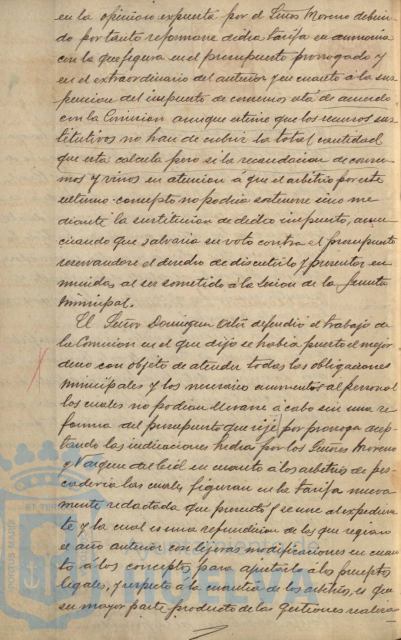 en la opinión expuesta por el Señor Moreno debien-
do por tanto reformarse dicha tarifa en armonia
con la que figura en el presupuesto prorrogado y
en el extraordinario del anterior y en cuanto á la sus-
pension del impuesto de consumos está de acuerdo
con la Comision aunque estima que los recursos sus-
titutivos no han de cubrir la total cantidad
que esta calcula pero si la recaudacion de consu-
mos y vinos en atencion á que el arbitrio por este
ultimo concepto no podria sostenerse sino me-
diante la sustitucion de dicho impuesto, anun-
ciando que salvaria su voto contra el presupuesto
reservandose el derecho de discutirlo y presentar en-
miendas al ser sometido á la sesion de la Junta
Municipal.
El Señor Dominguez Ortiz defendió el trabajo de
la Comision en el que dijo se habia puesto el mejor
deseo con objeto de atender todas las obligaciones
Municipales y los necesarios aumentos al personal
los cuales no podian llevarse á cabo sin una re-
forma del presupuesto que rije por prorroga acep-
tando las indicaciones hechas por los Señores Moreno
y Vazquez del Cid en cuanto á los arbitrios de pes-
caderia las cuales figuran en la tarifa nueva-
mente redactada que presentó y se une al expedien-
te y la cual es una refundicion de las que regian
el año anterior con lijeras modificaciones en cuan-
to á los conceptos para ajustarlo á los preceptos
legales, y respecto á la cuantia de los arbitrios, es que
su mayor parte producto de las gestiones realiza-
PORTUS MARIS
HUELVA